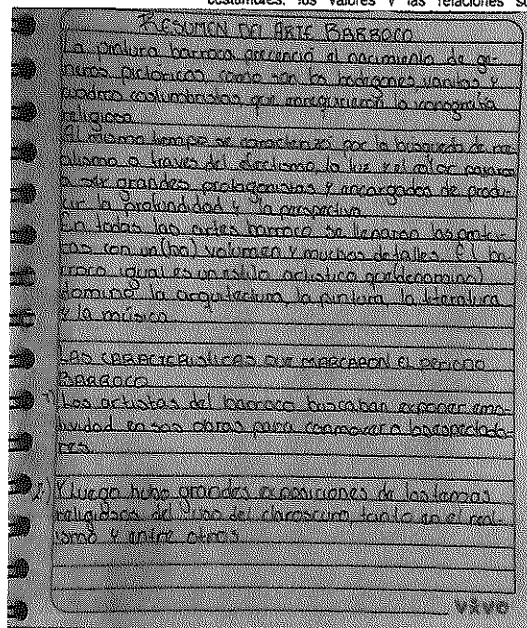 costumbres, los valores y las relaciones so
RESUMEN DEL ARTE BARROCO
La pintura barroca presenció el nacimiento de ge-
neros pictóricos como son los bodegones, vanitas y
cuadros costumbristas que enriquecieron la iconografía
religiosa
Al mismo tiempo se caracterizó por la busqueda de re-
alismo a través del efectismo, la luz y el color pasaron
a ser grandes protagonistas y encargados de produ-
cir la profundidad y la perspectiva.
En todas las artes barroco se llenaron las
con un(ha) volumen y muchos detalles. El ba-
rroco igual es un estilo artistico
domino la arquitectura, la pintura, la literatura
y la música
LAS CARACTERISTICAS QUE MARCARON EL PERIODO
BARROCO
1) Los artistas del barroco buscaban exponer emo-
tividad en sus obras para conmover a
res
2) Y luego hubo grandes exposiciones de los temas
religiosos del uso del claroscuro tanto en el real-
ismo y entre otros
VAVO